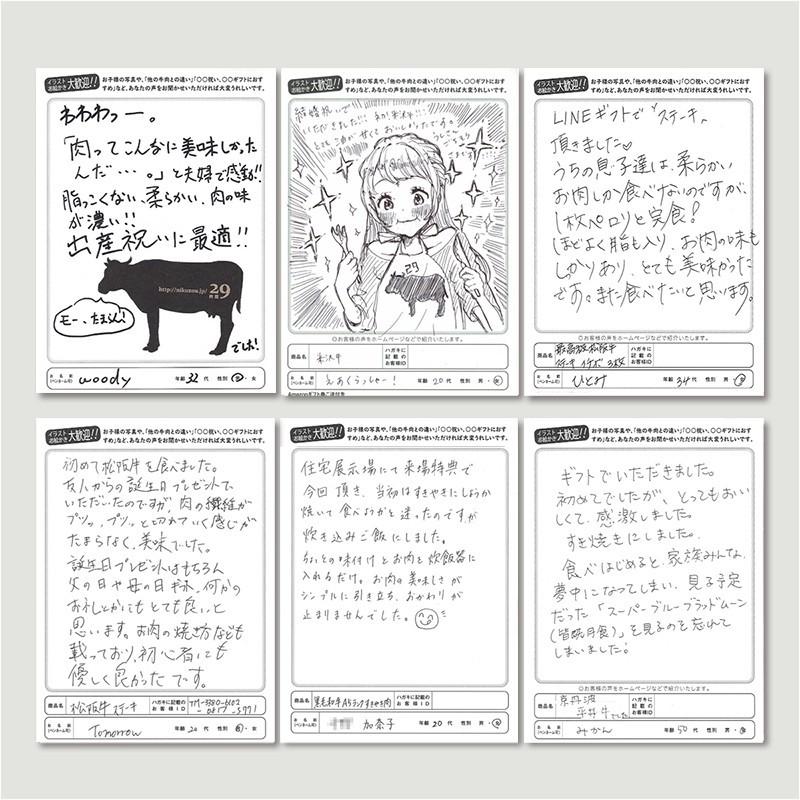 イラスト お絵かき 大歓迎!!
お子様の写真や、「他の牛肉との違い」「○○祝い、○○ギフトにおす
すめ」など、あなたの声をお聞かせいただければ大変うれしいです。
わわわっー。
「肉ってこんなに美味しかった
んだ…。」と夫婦で感動!!
脂っこくない、柔らかい、肉の味
が濃い!!
出産祝いに最適!!
http://nikuzou.jp/ 29
モー、たまらん!
でしお!
お名前
(ペンネーム可)
woody
年齢 32 代 性別 男・女
イラスト お絵かき 大歓迎!!
お子様の写真や、「他の牛肉との違い」「○○祝い、○○ギフトにおす
すめ」など、あなたの声をお聞かせいただければ大変うれしいです。
結婚祝いで
いただきました!!!
とても油が甘くておいしかったです。
29
◎お客様の声をホームページなどで紹介いたします。
商品名 米沢牛
ハガキに
記載の
お客様ID
お名前
(ペンネーム可)
年齢 20 代 性別 男・女
イラスト お絵かき 大歓迎!!
お子様の写真や、「他の牛肉との違い」「○○祝い、○○ギフトにおす
すめ」など、あなたの声をお聞かせいただければ大変うれしいです。
LINEギフトで“ステーキ”
頂きました♡
うちの息子達は、柔らかい
お肉しか食べないのですが、
1枚ペロリと完食!
ほどよく脂も入り、お肉の味も
しっかりあり、とても美味かった
です。また食べたいと思います。
◎お客様の声をホームページなどで紹介いたします。
商品名 最高級松阪牛
ステーキ イチボ 3枚
ハガキに
記載の
お客様ID
お名前
(ペンネーム可)
ひとみ
年齢 34 代 性別 男・女
イラスト お絵かき 大歓迎!!
お子様の写真や、「他の牛肉との違い」「○○祝い、○○ギフトにおす
すめ」など、あなたの声をお聞かせいただければ大変うれしいです。
初めて松阪牛を食べました。
友人からの誕生日プレゼントで
いただいたのですが、肉の繊維が
プツッ、プツッと切れていく感じが
たまらなく、美味でした。
誕生日プレゼントはもちろん
父の日や母の日ギフト、何かの
お礼とかにもとても良いと
思います。お肉の焼き方なども
載っており、初心者にも
優しく良かったです。
商品名 松阪牛ステーキ
ハガキに記載の
お客様ID
お名前
(ペンネーム可)
Tomorrow
年齢 20 代 性別 男・女
イラスト お絵かき 大歓迎!!
お子様の写真や、「他の牛肉との違い」「○○祝い、○○ギフトにおす
すめ」など、あなたの声をお聞かせいただければ大変うれしいです。
住宅展示場にて来場特典で
今回頂き、当初はすきやきにしようか
焼いて食べようかと迷ったのですが
炊き込みご飯にしました。
ちょっとの味付けとお肉を炊飯器に
入れるだけ。お肉の美味しさが
シンプルに引き立ち、おかわりが
止まりませんでした。
商品名 黒毛和牛A5ランクすきやき肉
ハガキに記載の
お客様ID
お名前
(ペンネーム可)
加奈子
年齢 20 代 性別 男・女
イラスト お絵かき 大歓迎!!
お子様の写真や、「他の牛肉との違い」「○○祝い、○○ギフトにおす
すめ」など、あなたの声をお聞かせいただければ大変うれしいです。
ギフトでいただきました。
初めてでしたが、とってもおいし
しくて、感激しました。
すき焼きにしました。
食べはじめると、家族みんな、
夢中になってしまい、見る予定
だった「スーパーブルーブラッドムーン
(皆既月食)」を見るのを忘れて
しまいました!
◎お客様の声をホームページなどで紹介いたします。
商品名 京丹波
平井牛でした
ハガキに
記載の
お客様ID
お名前
(ペンネーム可)
みかん
年齢 50 代 性別 男・女